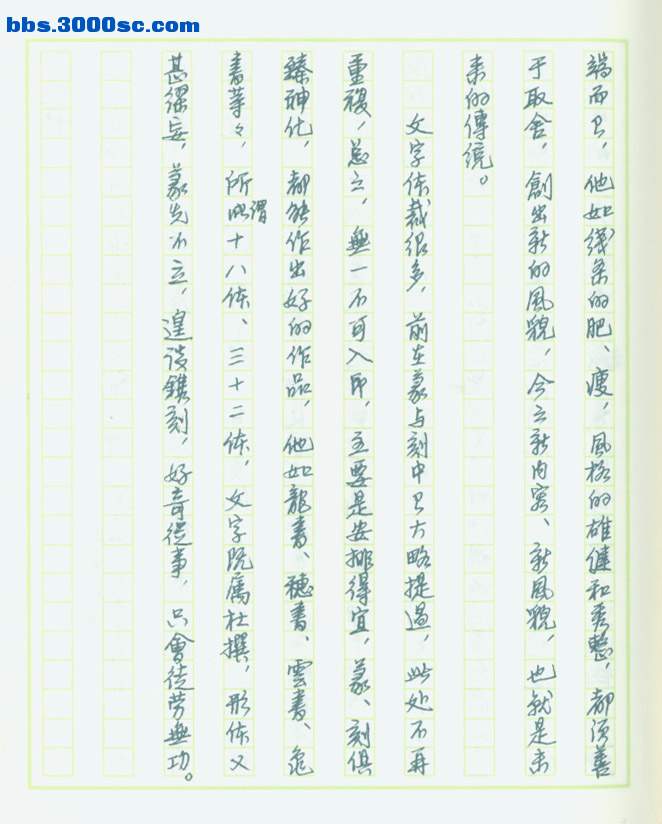 bbs.3000sc.com
端而已，他如线条的肥、瘦，風格的雄健和秀整，都须善
于取舍，創出新的風貌，今之新内容、新風貌，也就是未
来的傳统。
文字体裁很多，前在篆与刻中已大略提過，此处不再
重複，总之，無一不可入印，主要是安排得宜，篆、刻俱
臻神化，都能作出好的作品，他如龍書、穗書、雲書、龟
書等々，所謂十八体、三十二体，文字既属杜撰，形体又
甚繆妄，篆先不立，遑谈鐫刻，好奇從事，只會徒劳無功。